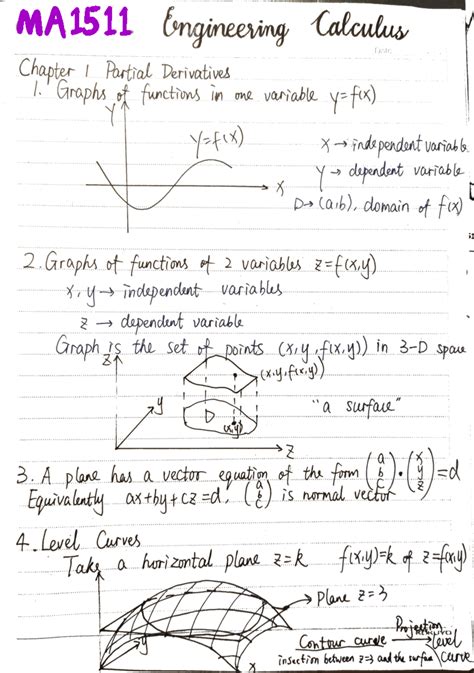 MA1511 Engineering Calculus
Date:
Chapter 1 Partial Derivatives
1. Graphs of functions in one variable y=f(x)
Y
y=f(x)
X
X → independent variable
Y → dependent variable
D→ (a,b), domain of f(x)
2. Graphs of functions of 2 variables z=f(x,y)
x, y → independent variables
z → dependent variable
Graph is the set of points (x,y,f(x,y)) in 3-D space
z
(x,y,f(x,y))
y
D
(x,y)
"a surface"
z
3. A plane has a vector equation of the form (a b c)·(x y z)=d
Equivalently ax+by+cz=d, (a b c) is normal vector
4. Level Curves
Take a horizontal plane z=k f(x,y)=k of z=f(x,y)
→ Plane z=3
y
x
Contour curve Projection → level curve
insection between z=3 and the surface